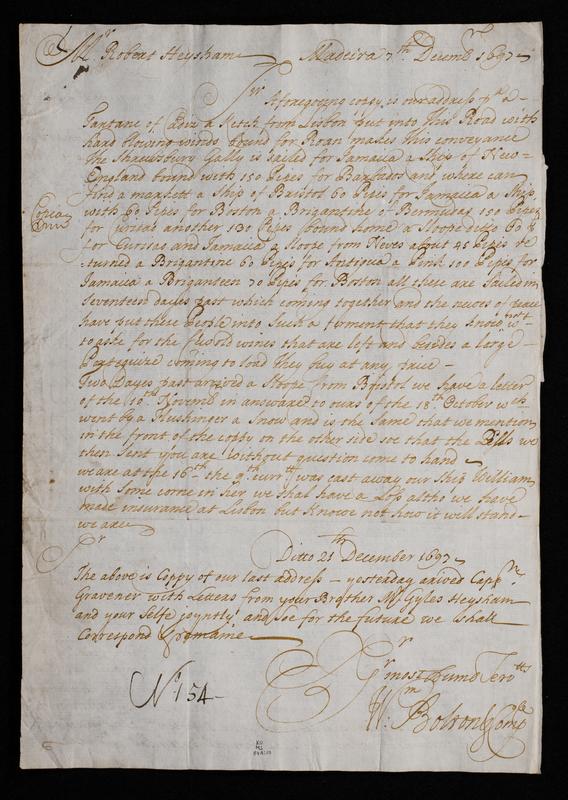 Mr Robert Heysham Madeira 7th Decemr 1697
Sr
Aforegoing coppy is our address pr a
Tartane of Cadiz a Ketch from Lisbon put into this Road with
hard blowing winds bound for Roan makes this conveyance
the Shrewsbury Gally is sailed for Jamaica a Ship of New=
England bound with 150 Pipes for Barbados and wheare can
find a markett a Ship of Bristol 60 Pipes for Jamaica a Ship
Copia with 60 Pipes for Boston a Brigantine of Bermudas 150 Pipes
for another 120 Pipes bound home a Sloope ditto 60
for Curisas and Jamaica a Sloope from Neves about 45 Pipes re
=turned a Brigantine 60 Pipes for Antigua a Pink 100 Pipes for
Jamaica a Briganteen 70 Pipes for Boston all these are Sailed in
Seventeen dayes past which coming together and the newes of peace
have put these People into Such a torment that they know not wt
to aske for the few old wines that are left and besides a large
Portequize coming to load they buy at any price
Two Dayes past arrived a Sloope from Bristol we have a letter
of the 10th Novemb in answare to ours of the 18th October wch
went by a Flushinger a Snow and is the Same that we mention
in the front of the coppy on the other side soe that the Bills we
then Sent you are without question come to hand
we are at the 16th the 9th currtt was cast away our Ship William
with Some corne in her we shal have a Loss altho we have
made insurance at Lisbon but Knowe not how it will stand
we are
Sr
Ditto 21th December 1697
The above is Coppy of our last address - yesterday arived Capp
Gravener with Letters from your Brother Mr Gyles Heysham
and your Selfe joyntly and Soe for the future we Shall
Correspond & remaine
Sr
Yr most humb Servtts
No 154 Wm: Bolton & Compa